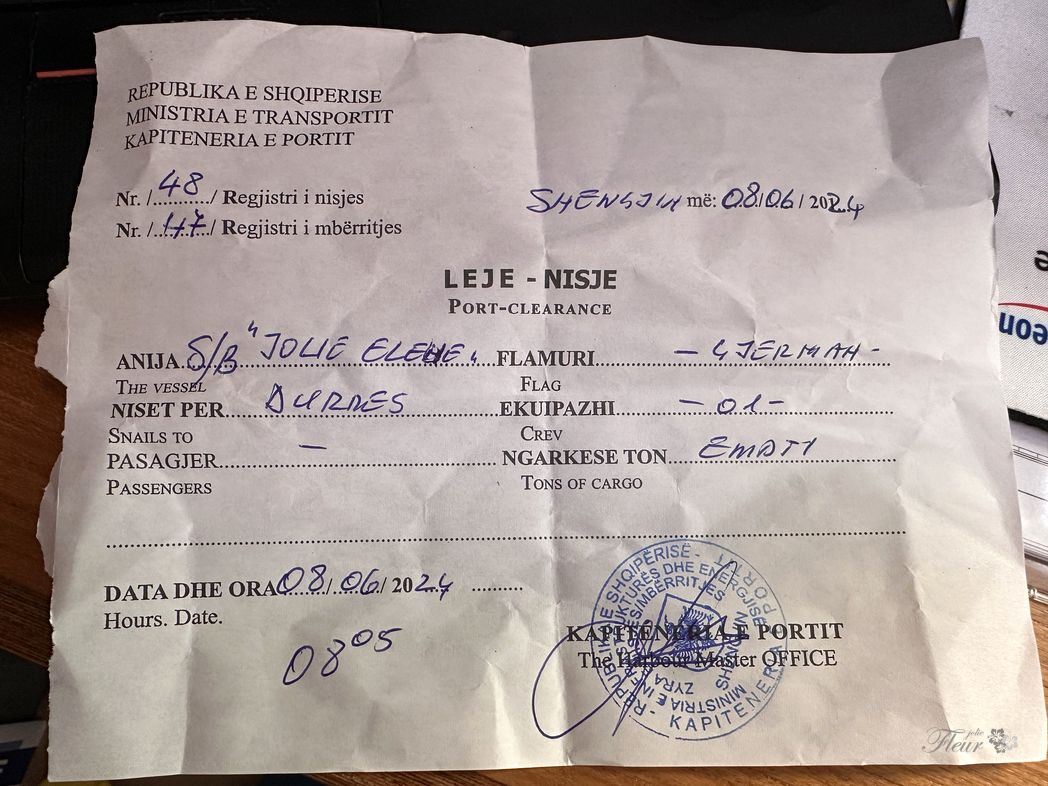 REPUBLIKA E SHQIPERISE
MINISTRIA E TRANSPORTIT
KAPITENERIA E PORTIT
Nr. /...48.../ Regjistri i nisjes
SHENGJIN më: 08/06/2024
Nr. /...47.../ Regjistri i mbërritjes
LEJE - NISJE
PORT-CLEARANCE
ANIJA S/B "JOLIE ELENE" FLAMURI - GJERMAN -
THE VESSEL FLAG
NISET PER DURRES EKUIPAZHI - 01 -
SNAILS TO CREV
PASAGJER - NGARKESE TON
PASSENGERS TONS OF CARGO
DATA DHE ORA 08/06/2024
Hours. Date.
0805
KAPITENERIA E PORTIT
The Harbour Master OFFICE
REPUBLIKA E SHQIPËRISË
KAPITENERIA E PORTIT
SHENGJIN
jolie
Fleur